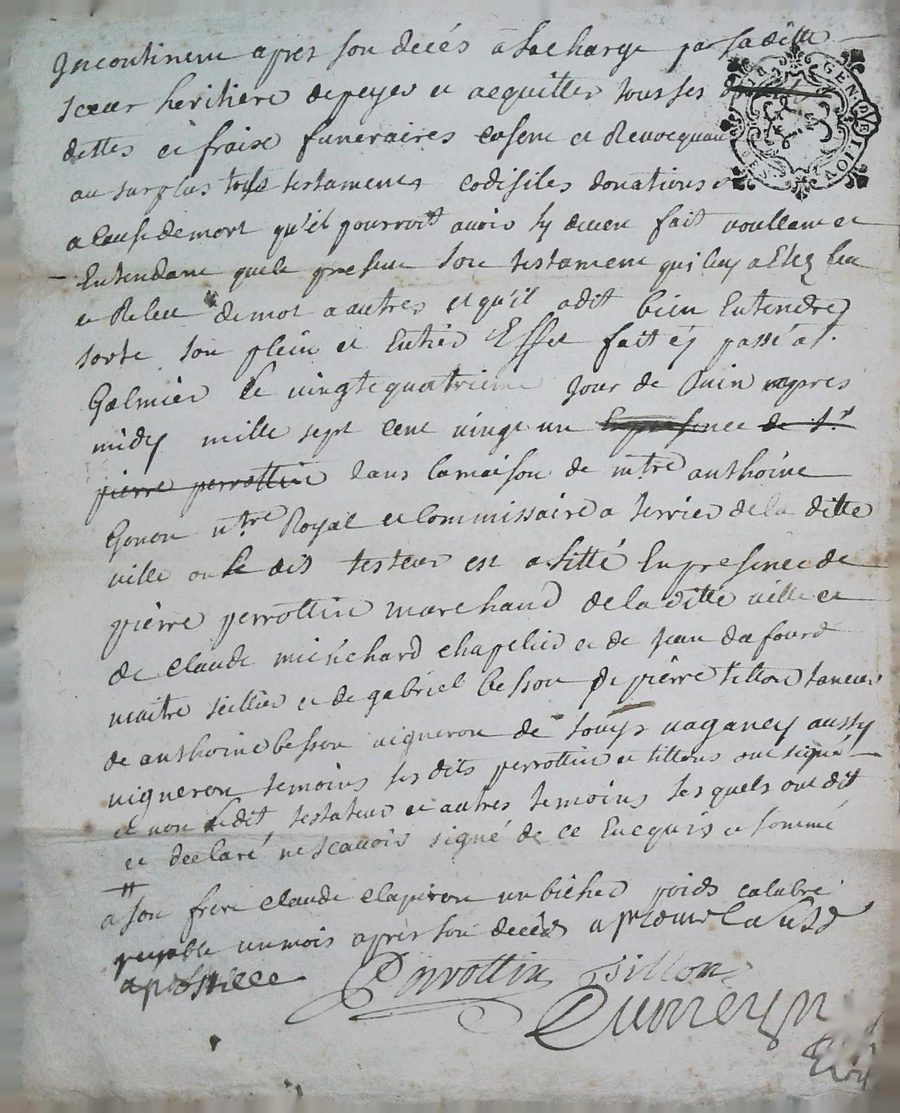 Incontinent apres son decés a la charge par sa ditte
GEN DE LION
sœur heritiere de peyer et acquitter tous ses
dettes et fraix funeraires casent et Revocquant
au surplus tous testaments codisiles donations
a cause de mort qu'il pourroit avoir sy devent fait voullant et
Entendant que le present son testament qui luy a Etez leu
et Releu de mot a autres et qu'il a dit bien Entendre
sorte son plein et Entier Effet fait et passé a St
Galmier le vingtequatrieme Jour de Juin apres
midy mille sept cent vingt un Enpresence de Sr
pierre perrottin dans la maison de mtre anthoine
Gonon ntre Royal et Commissaire a terrier de la ditte
ville ou le dit testeur est alitté En presence de
pierre perrottin marchand de la ditte ville et
de claude michchard chapelier et de Jean dafourd
maitre seillier et de gabriel besson de pierre tillon taneur
de anthoine besson vigneron de Louys vaganey aussy
vigneron temoins les dits perrottin et tillons ont signé
et non le dit testateur et autres temoins les quels ont dit
et declaré ne scavoir signé de ce Enequis et sommé
a son frere claude claperon un bichet poids
payable un mois apres son decéds aprouve la susd
apostille
Perrottin Tillon